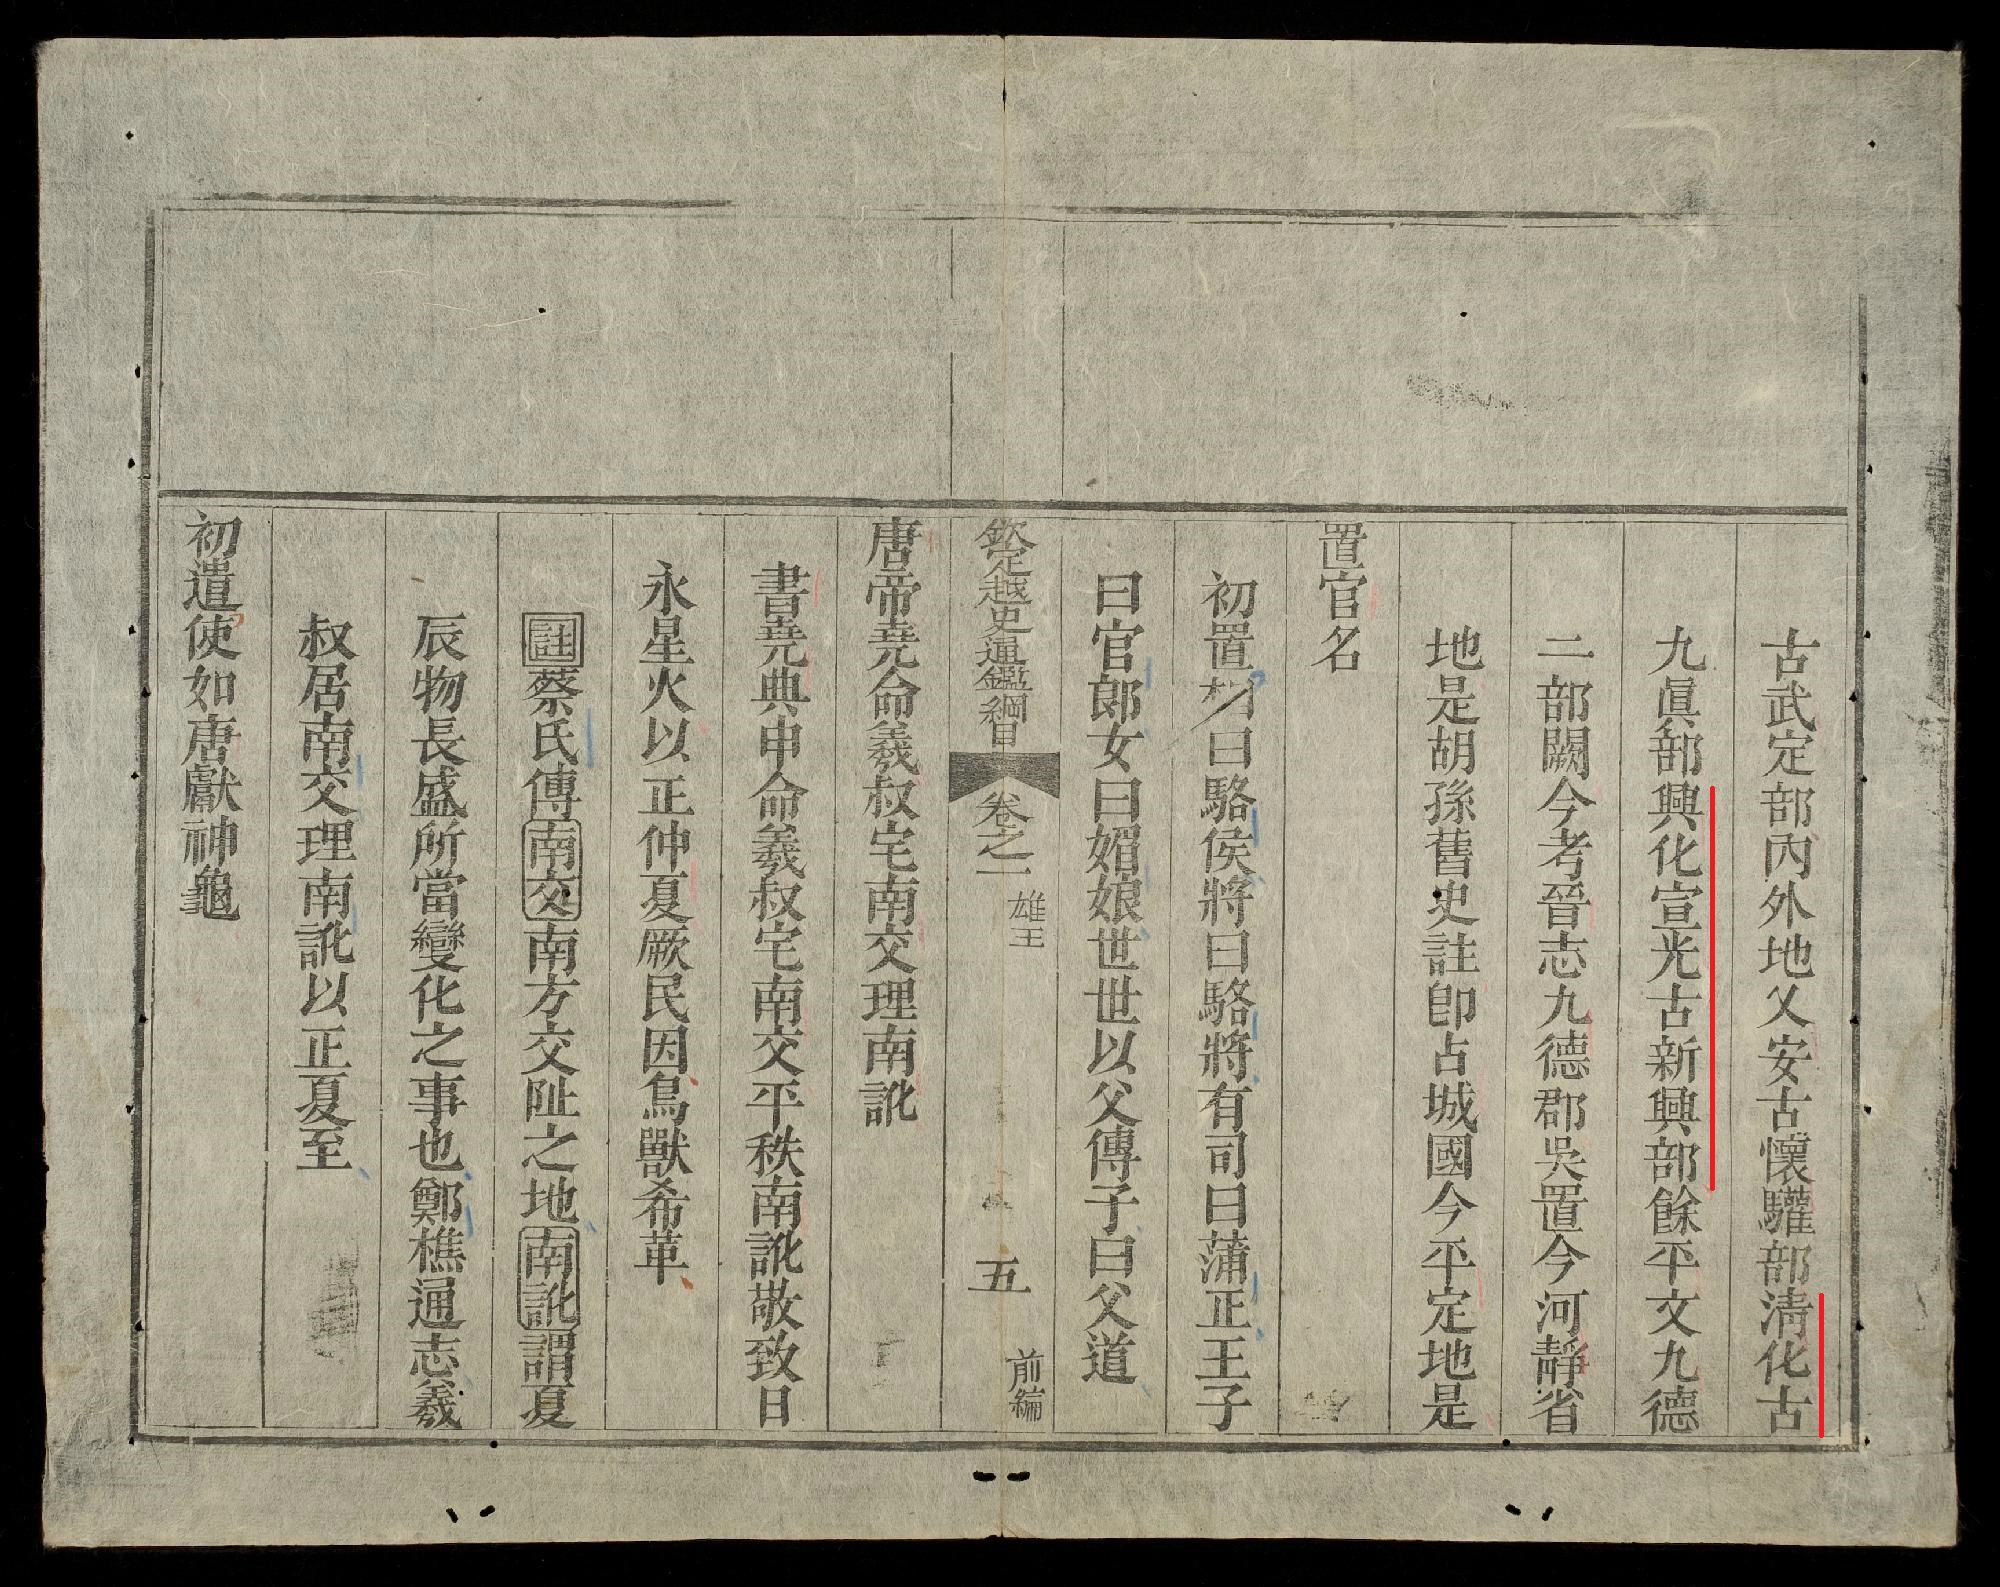 古武定部內外地乂安古懷驩部淸化古
九眞部興化宣光古新興部餘平文九德
二部闕今考晉志九德郡吳置今河靜省
地是胡孫舊史註卽占城國今平定地是
置官名
初置相曰駱侯將曰駱將有司曰蒲正王子
曰官郎女曰媚娘世世以父傳子曰父道
欽定越史通鑑綱目 卷之一 雄王 五 前編
唐帝堯命羲叔宅南交理南訛
書堯典申命羲叔宅南交平秩南訛敬致日
永星火以正仲夏厥民因鳥獸希革
註蔡氏傳南交南方交阯之地南訛謂夏
辰物長盛所當變化之事也鄭樵通志羲
叔居南交理南訛以正夏至
初遣使如唐獻神龜